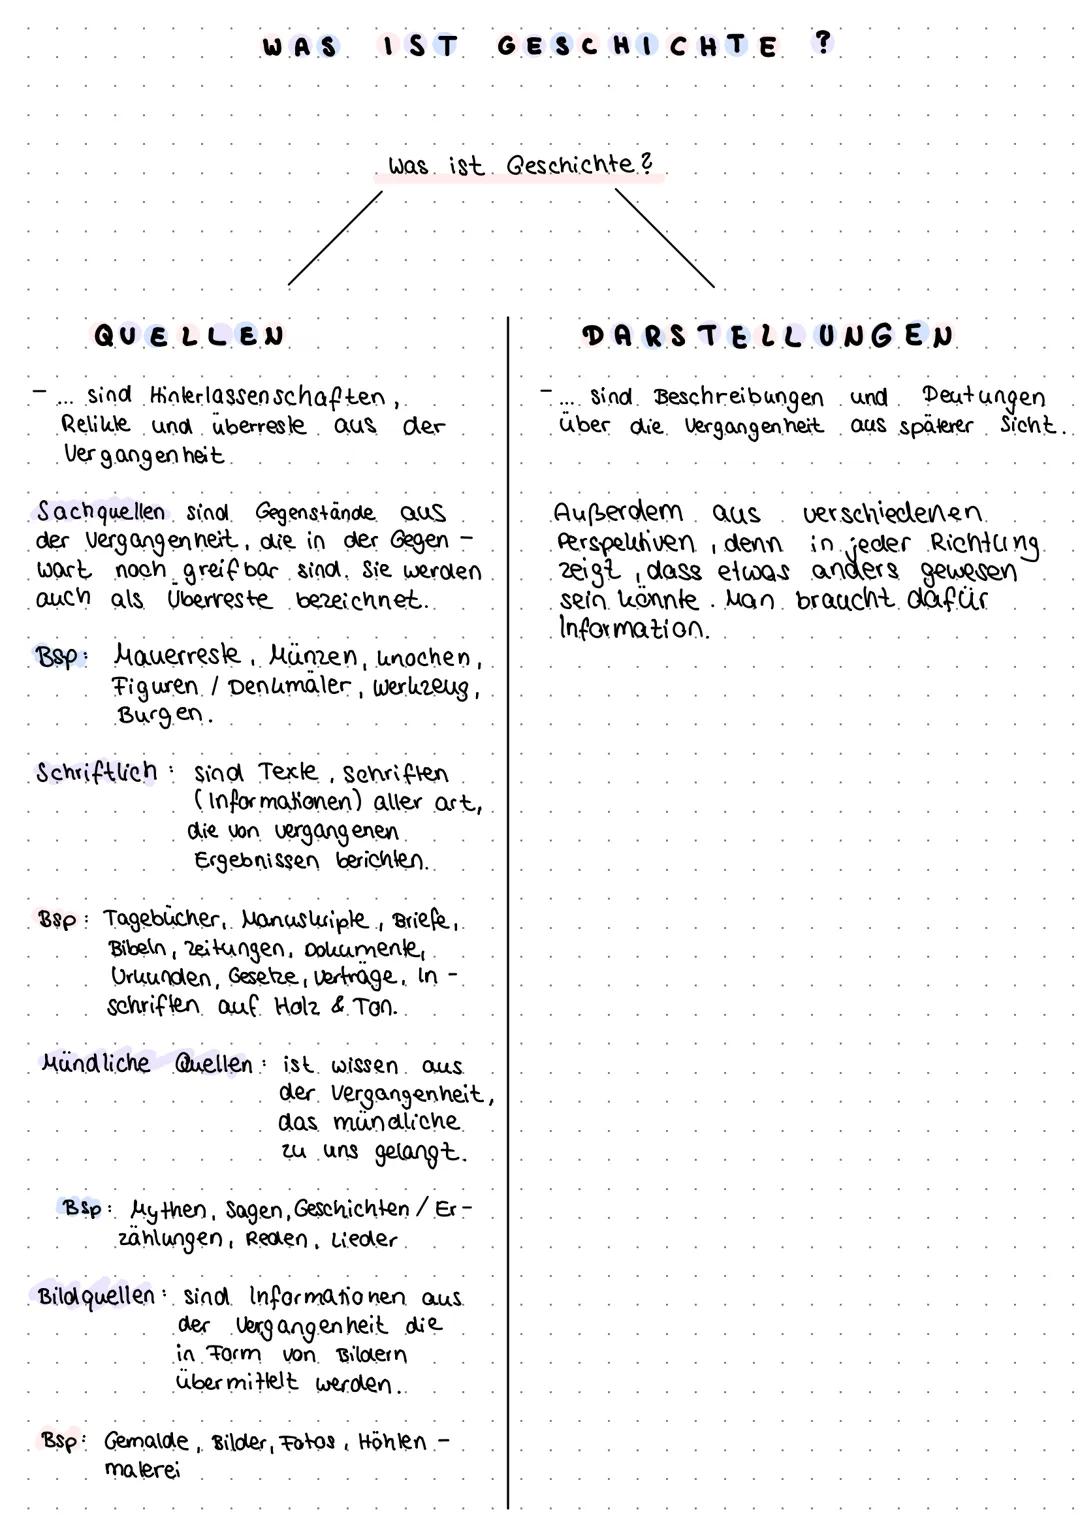 WAS IST GESCHICHTE ?
Was ist Geschichte?
QUELLEN
- ... sind Hinterlassenschaften,
Relikte und überreste aus der
Vergangenheit.
Sachquellen sind Gegenstände aus
der Vergangenheit, die in der Gegen-
wart noch greifbar sind. Sie werden
auch als Überreste bezeichnet.
Bsp: Mauerreste, Münzen, knochen,
Figuren / Denkmäler, Werkzeug,
Burgen.
Schriftlich: sind Texte, Schriften
(Informationen) aller art,
die von vergangenen
Ergebnissen berichten.
Bsp: Tagebücher, Manuskripte, Briefe,
Bibeln, Zeitungen, Dokumente,
Urkunden, Gesetze, Verträge, In-
schriften auf Holz & Ton.
Mündliche Quellen: ist wissen aus
der Vergangenheit,
das mündliche
zu uns gelangt.
Bsp: Mythen, Sagen, Geschichten / Er-
zählungen, Reden, Lieder
Bildquellen: sind Informationen aus
der Vergangenheit die
in Form von Bildern
übermittelt werden.
Bsp: Gemalde, Bilder, Fotos, Höhlen-
malerei
DARSTELLUNGEN
- ... sind Beschreibungen und Deutungen
über die Vergangenheit aus späterer Sicht.
Außerdem aus verschiedenen
Perspektiven, denn in jeder Richtung
zeigt, dass etwas anders gewesen
sein könnte. Man braucht dafür
Information.